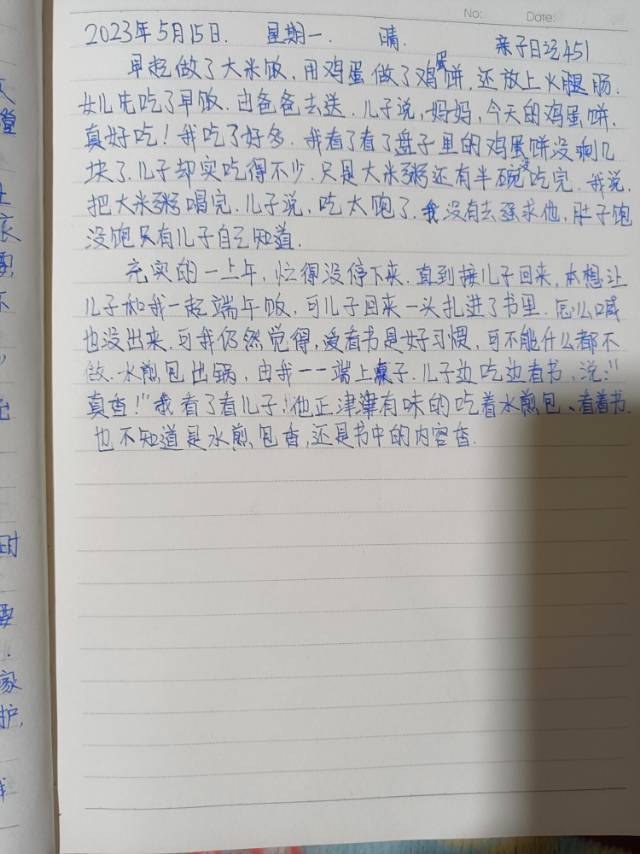 No:  Date:
2023年5月15日. 星期一. 晴. 亲子日记451
早起做了大米饭,用鸡蛋做了鸡蛋饼,还放上火腿肠.
女儿先吃了早饭.由爸爸去送.儿子说,妈妈,今天的鸡蛋饼.
真好吃!我吃了好多.我看了看了盘子里的鸡蛋饼没剩几
块了.儿子却实吃得不少.只是大米粥还有半碗没吃完.我说,
把大米粥喝完.儿子说,吃太饱了.我没有去强求他,肚子饱
没饱只有儿子自己知道.
充实的一上午,忙得没停下来.直到接儿子回来,本想让
儿子和我一起端午饭,可儿子回来一头扎进了书里.怎么喊
也没出来.可我仍然觉得,爱看书是好习惯,可不能什么都不
做.水煎包出锅,由我一一端上桌子.儿子边吃边看书,说:"
真香!"我看了看儿子!他正津津有味的吃着水煎包、看着书.
也不知道是水煎包香,还是书中的内容香.
时
要
家
护,